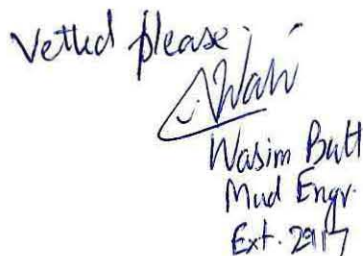 Vetted please.
Wasim Butt
Mud Engr.
Ext. 2917